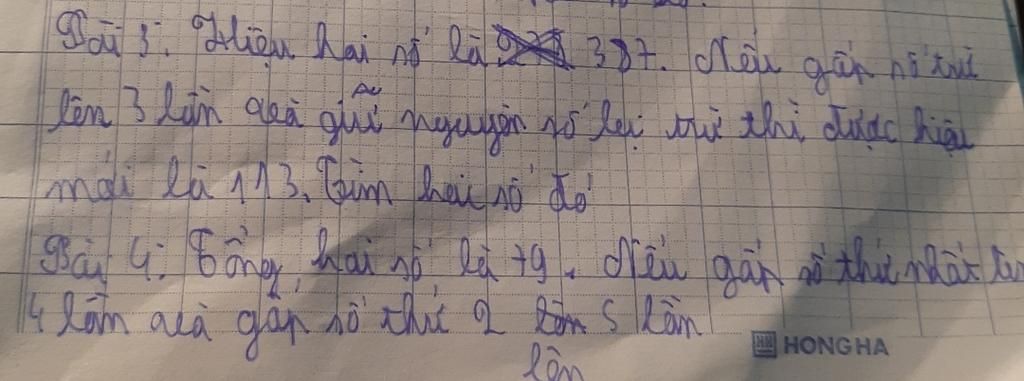 Bài 3: Hiệu hai số là 387. Nếu gấp số trừ
lên 3 lần và giữ nguyên số bị trừ thì được hiệu
mới là 113. Tìm hai số đó
Bài 4: Tổng hai số là 79. Nếu gấp số thứ nhất lên
4 lần và gấp số thứ 2 5 lần
lên
HONG HA